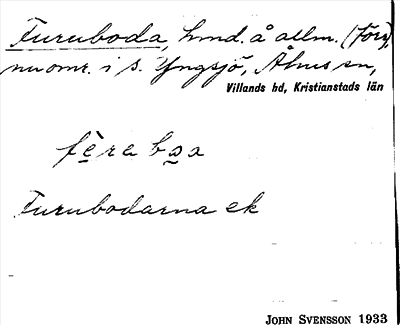 Furuboda, hmd. å allm. (förr),
nu omr. i s. Yngsjö, Åhus sn,
Villands hd, Kristianstads län
fereboa
Furubodarna ek
JOHN SVENSSON 1933